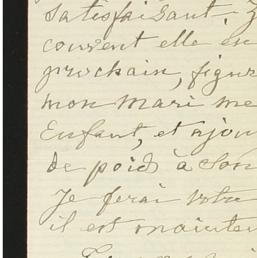 satisfaisant; j
couvent elle en
prochain, figur
mon Mari me
Enfant, et ajou
de poids à son
Je ferai votre
il est mainten